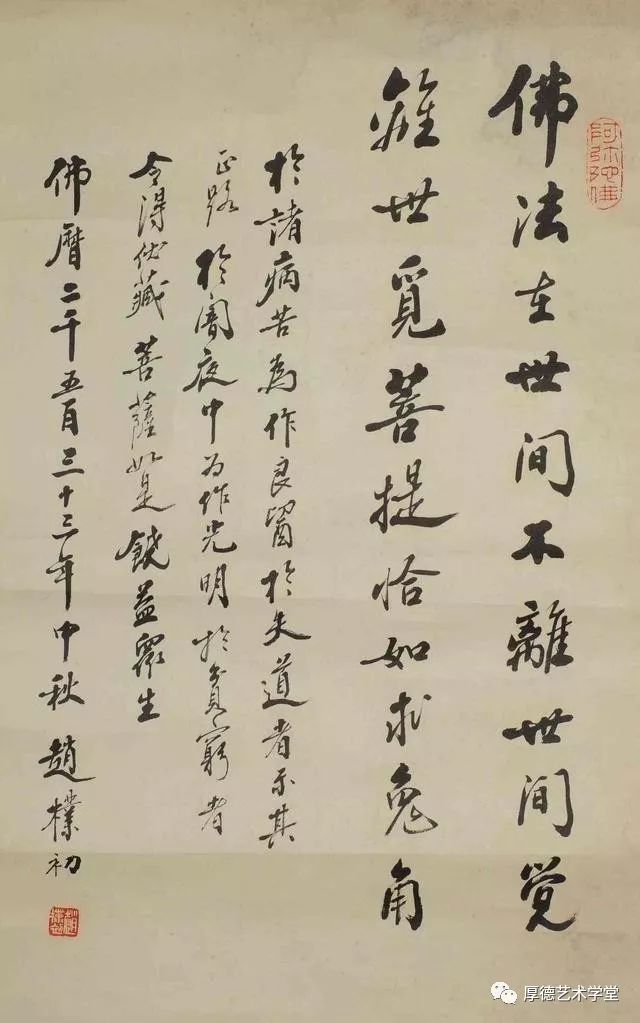 佛法在世間不離世間覺
離世覓菩提恰如求兔角
於諸病苦為作良醫於失道者示其
正路於闇夜中为作光明於貧窮者
令得伏藏菩薩如是饒益眾生
佛曆二千五百三十三年中秋趙樸初
厚德艺术学堂